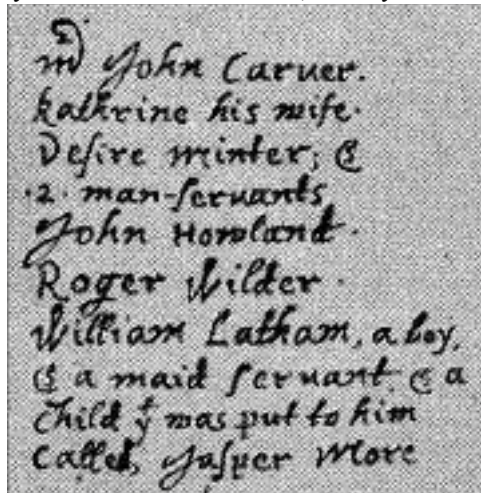 mr John Carver.
kathrine his wife.
Desire minter; &
·2· man-servants
John Howland.
Roger Wilder.
William Latham, a boy,
& a maid servant. & a
child yt was put to him
called, Jasper More